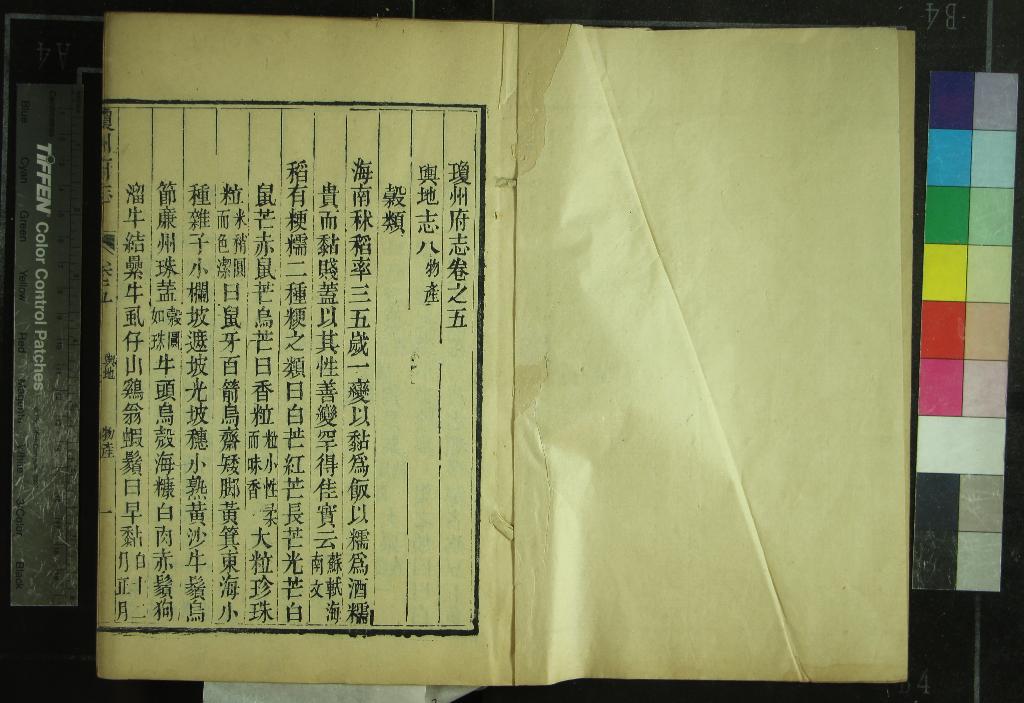 瓊州府志卷之五
輿地志八物產
穀類
海南秫稻率三五歲一變以黏為飯以糯為酒糯
貴而黏賤蓋以其性善變罕得佳實云蘇軾海南文
稻有粳糯二種粳之類曰白芒紅芒長芒光芒白
鼠芒赤鼠芒烏芒曰香粒粒小性柔而味香大粒珍珠
粒米稍圓而色潔曰鼠牙百箭烏齋矮腳黃箕東海小
種雜子小欄坡遮坡光坡穗小熟黃沙牛鬚烏
節廉州珠盖榖圓如珠牛頭烏殼海糠白肉赤鬚狗
溜牛結纍牛虱仔山鷄翁蝦鬚曰早黏
瓊州府志
卷五
輿地
物產
一
TIFFEN Color Control Patches
Blue
Cyan
Green
Yellow
Red
Magenta
White
3/Color
Black
A4
B4
B4